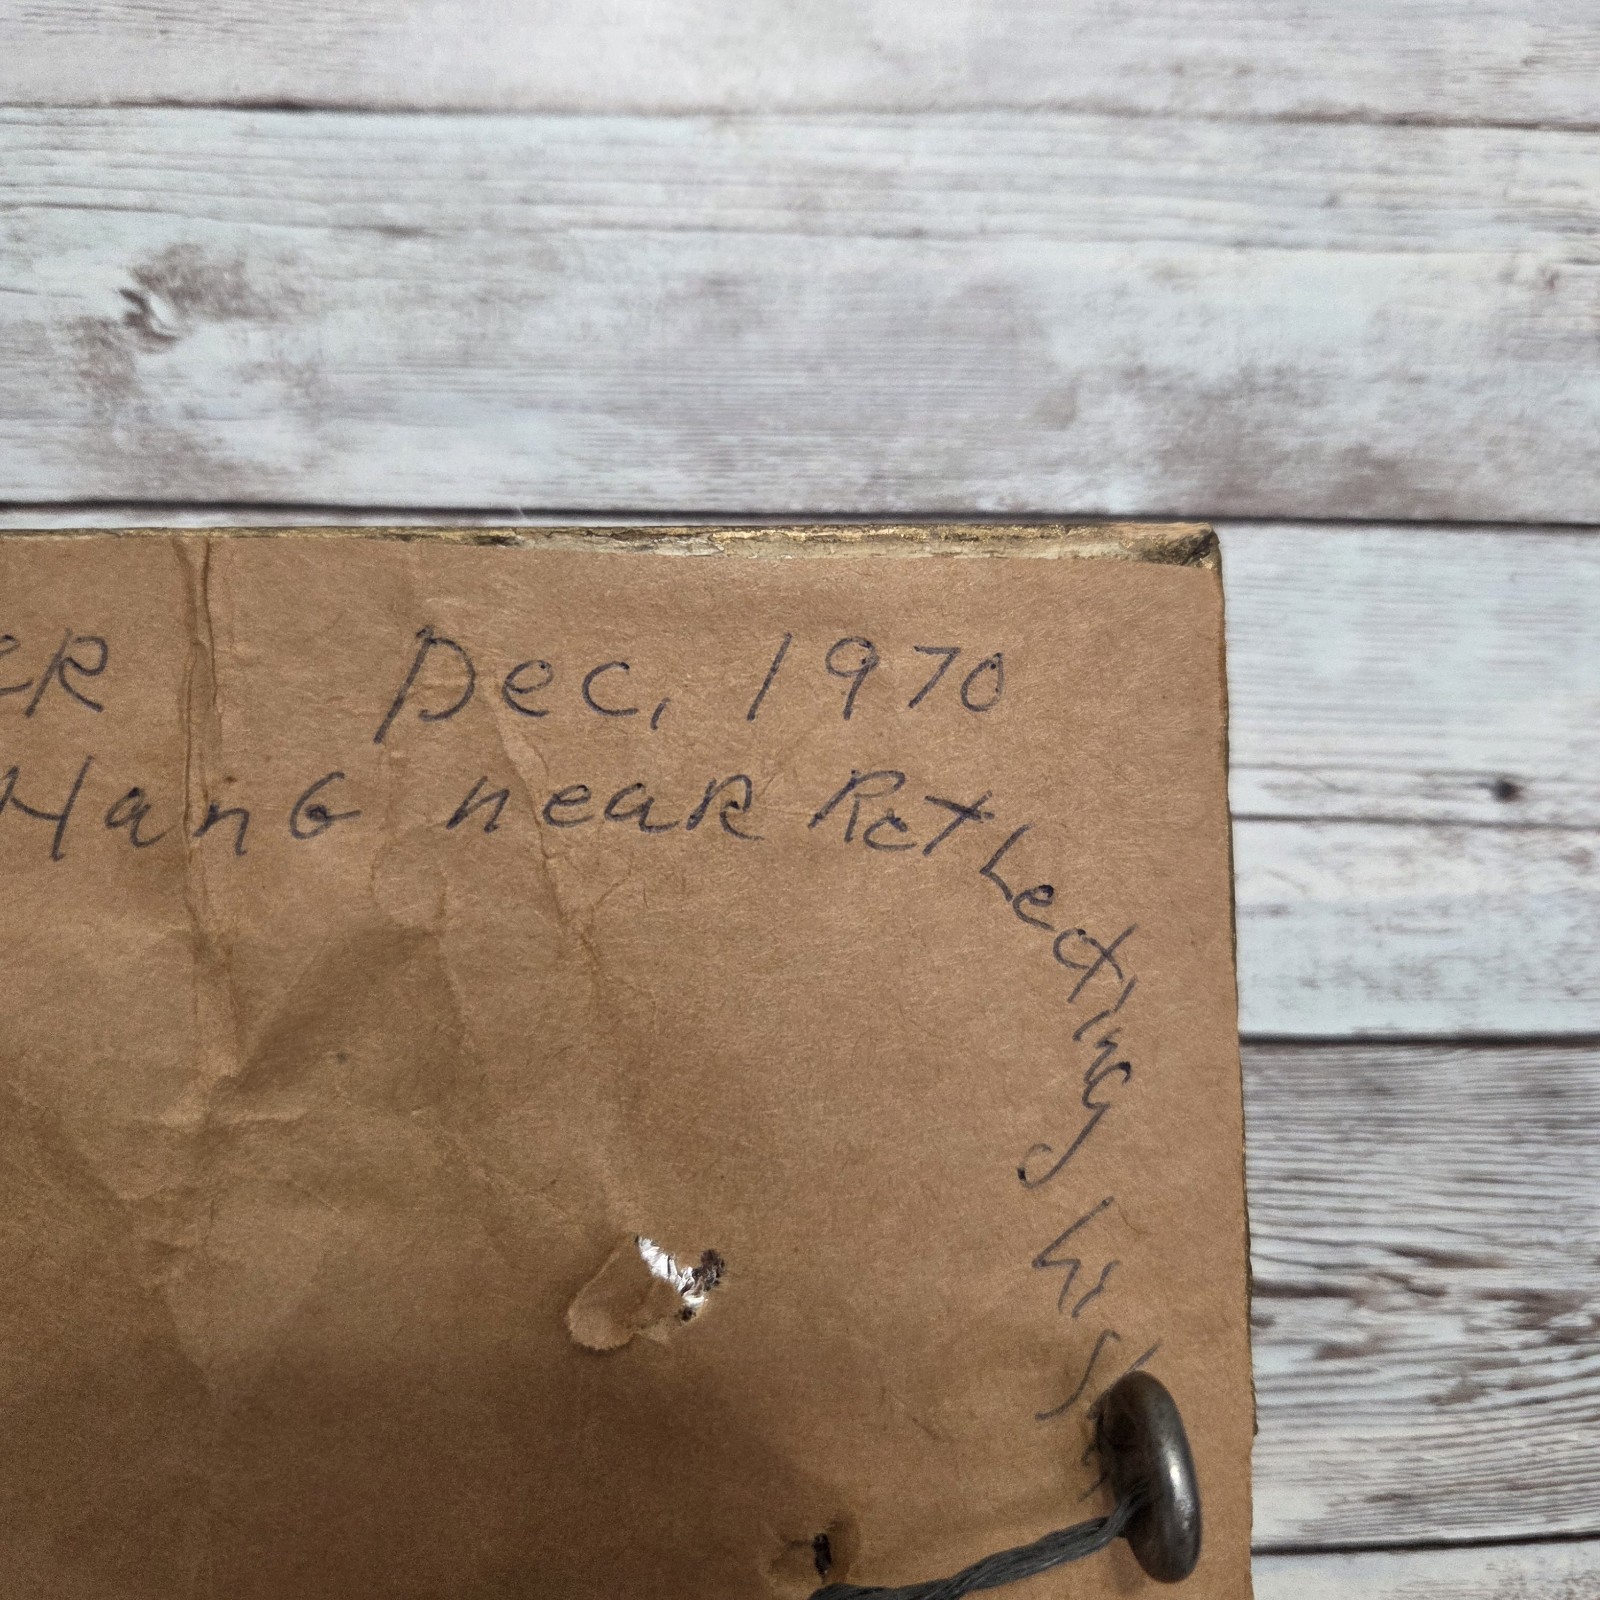 ER Dec, 1970
Hang near Reflecting